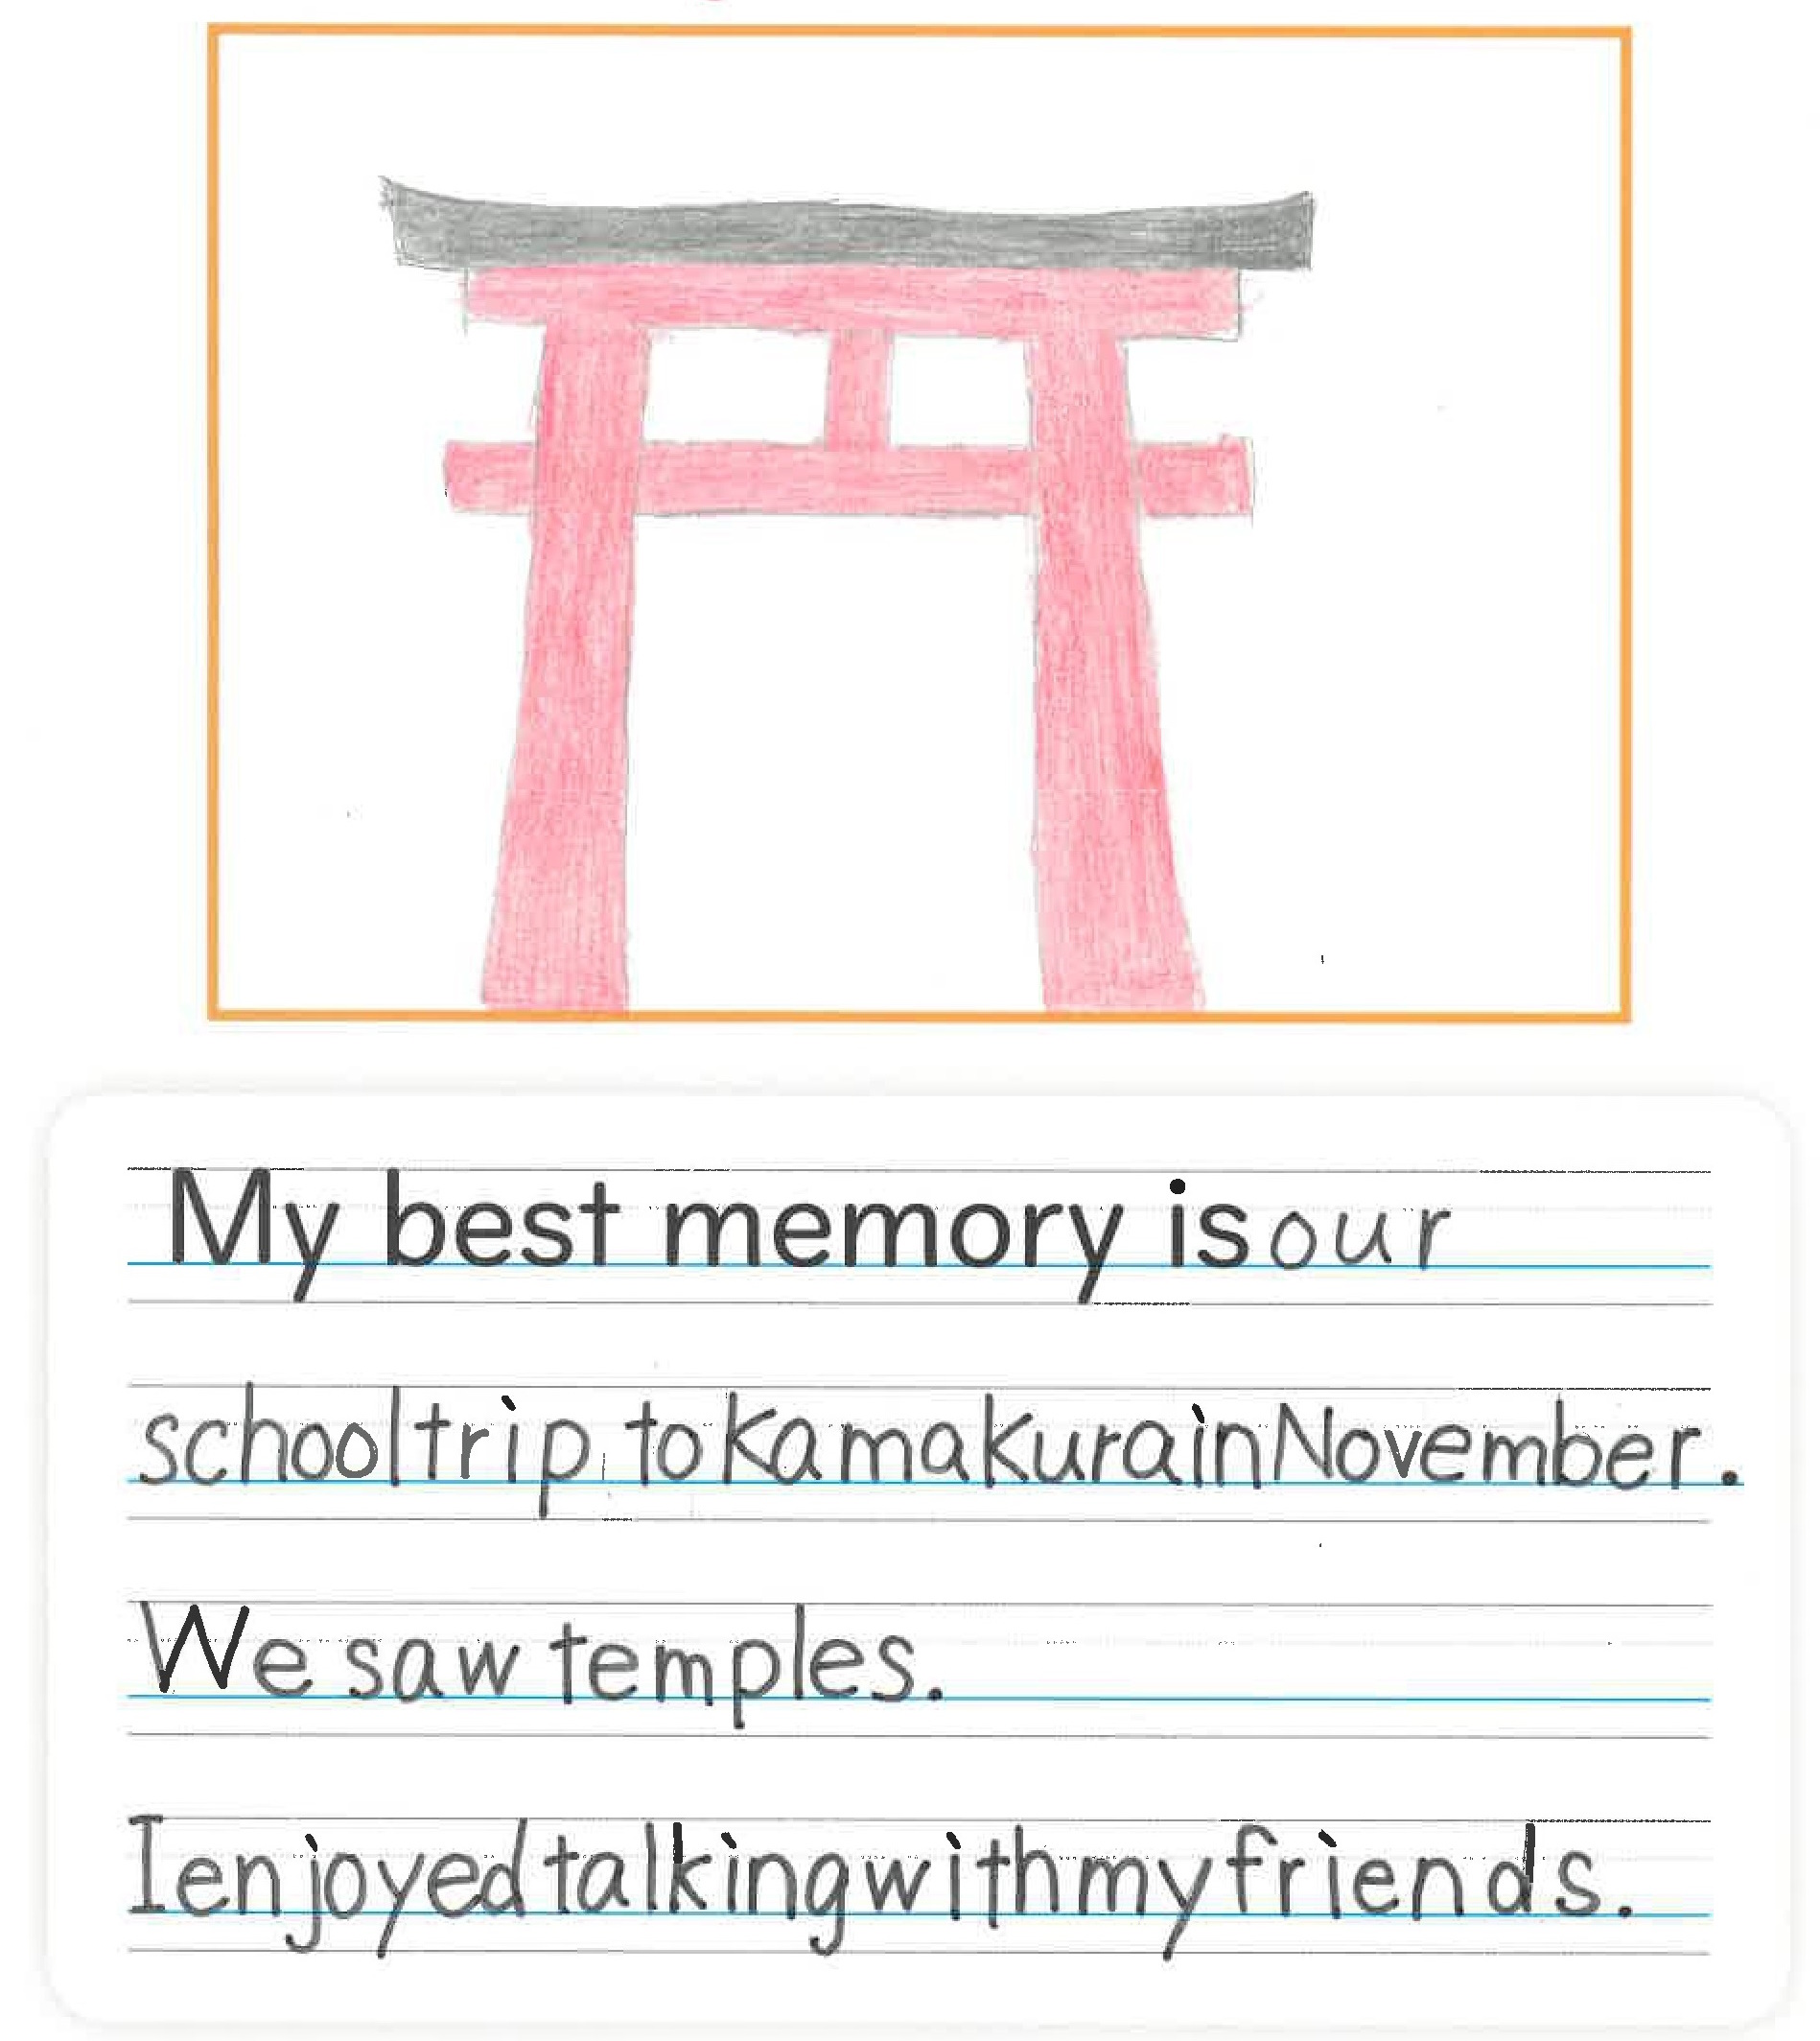 My best memory is our
school trip to Kamakura in November.
We saw temples.
I enjoyed talking with my friends.